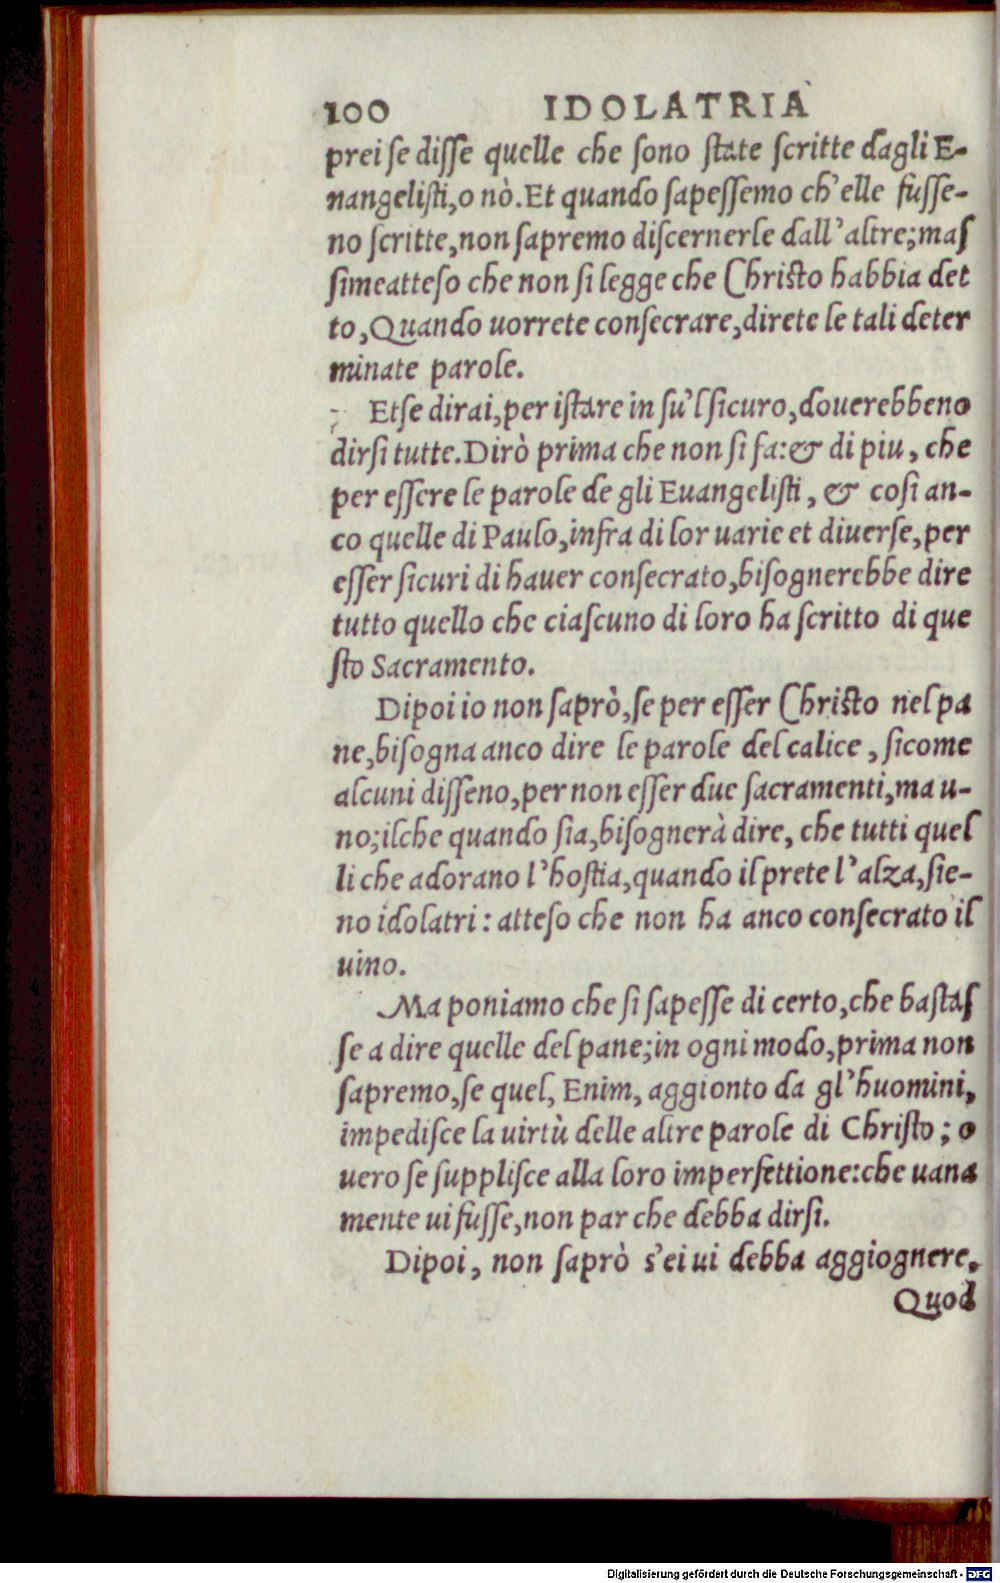 100 IDOLATRIA
prei se disse quelle che sono state scritte dagli E-
nangelisti, o nò. Et quando sapessemo ch'elle fusse-
no scritte, non sapremo discernerle dall'altre; mas
simeatteso che non si legge che Christo habbia det
to, Quando uorrete consecrare, direte le tali deter
minate parole.
Etse dirai, per istare in su'l sicuro, douerebbeno
dirsi tutte. Dirò prima che non si fa: & di piu, che
per essere le parole de gli Euangelisti, & cosi an-
co quelle di Paulo, infra di lor uarie et diuerse, per
esser sicuri di hauer consecrato, bisognerebbe dire
tutto quello che ciascuno di loro ha scritto di que
sto Sacramento.
Dipoi io non saprò, se per esser Christo nel pa
ne, bisogna anco dire le parole del calice, sicome
alcuni disseno, per non esser due sacramenti, ma u-
no; ilche quando sia, bisognerà dire, che tutti quel
li che adorano l'hostia, quando il prete l'alza, sie-
no idolatri: atteso che non ha anco consecrato il
uino.
Ma poniamo che si sapesse di certo, che bastas
se a dire quelle del pane; in ogni modo, prima non
sapremo, se quel, Enim, aggionto da gl'huomini,
impedisce la uirtù delle altre parole di Christo; o
uero se supplisce alla loro imperfettione: che uana
mente ui fusse, non par che debba dirsi.
Dipoi, non saprò s'ei ui debba aggiognere,
Quod
Digitalisierung gefördert durch die Deutsche Forschungsgemeinschaft - DFG